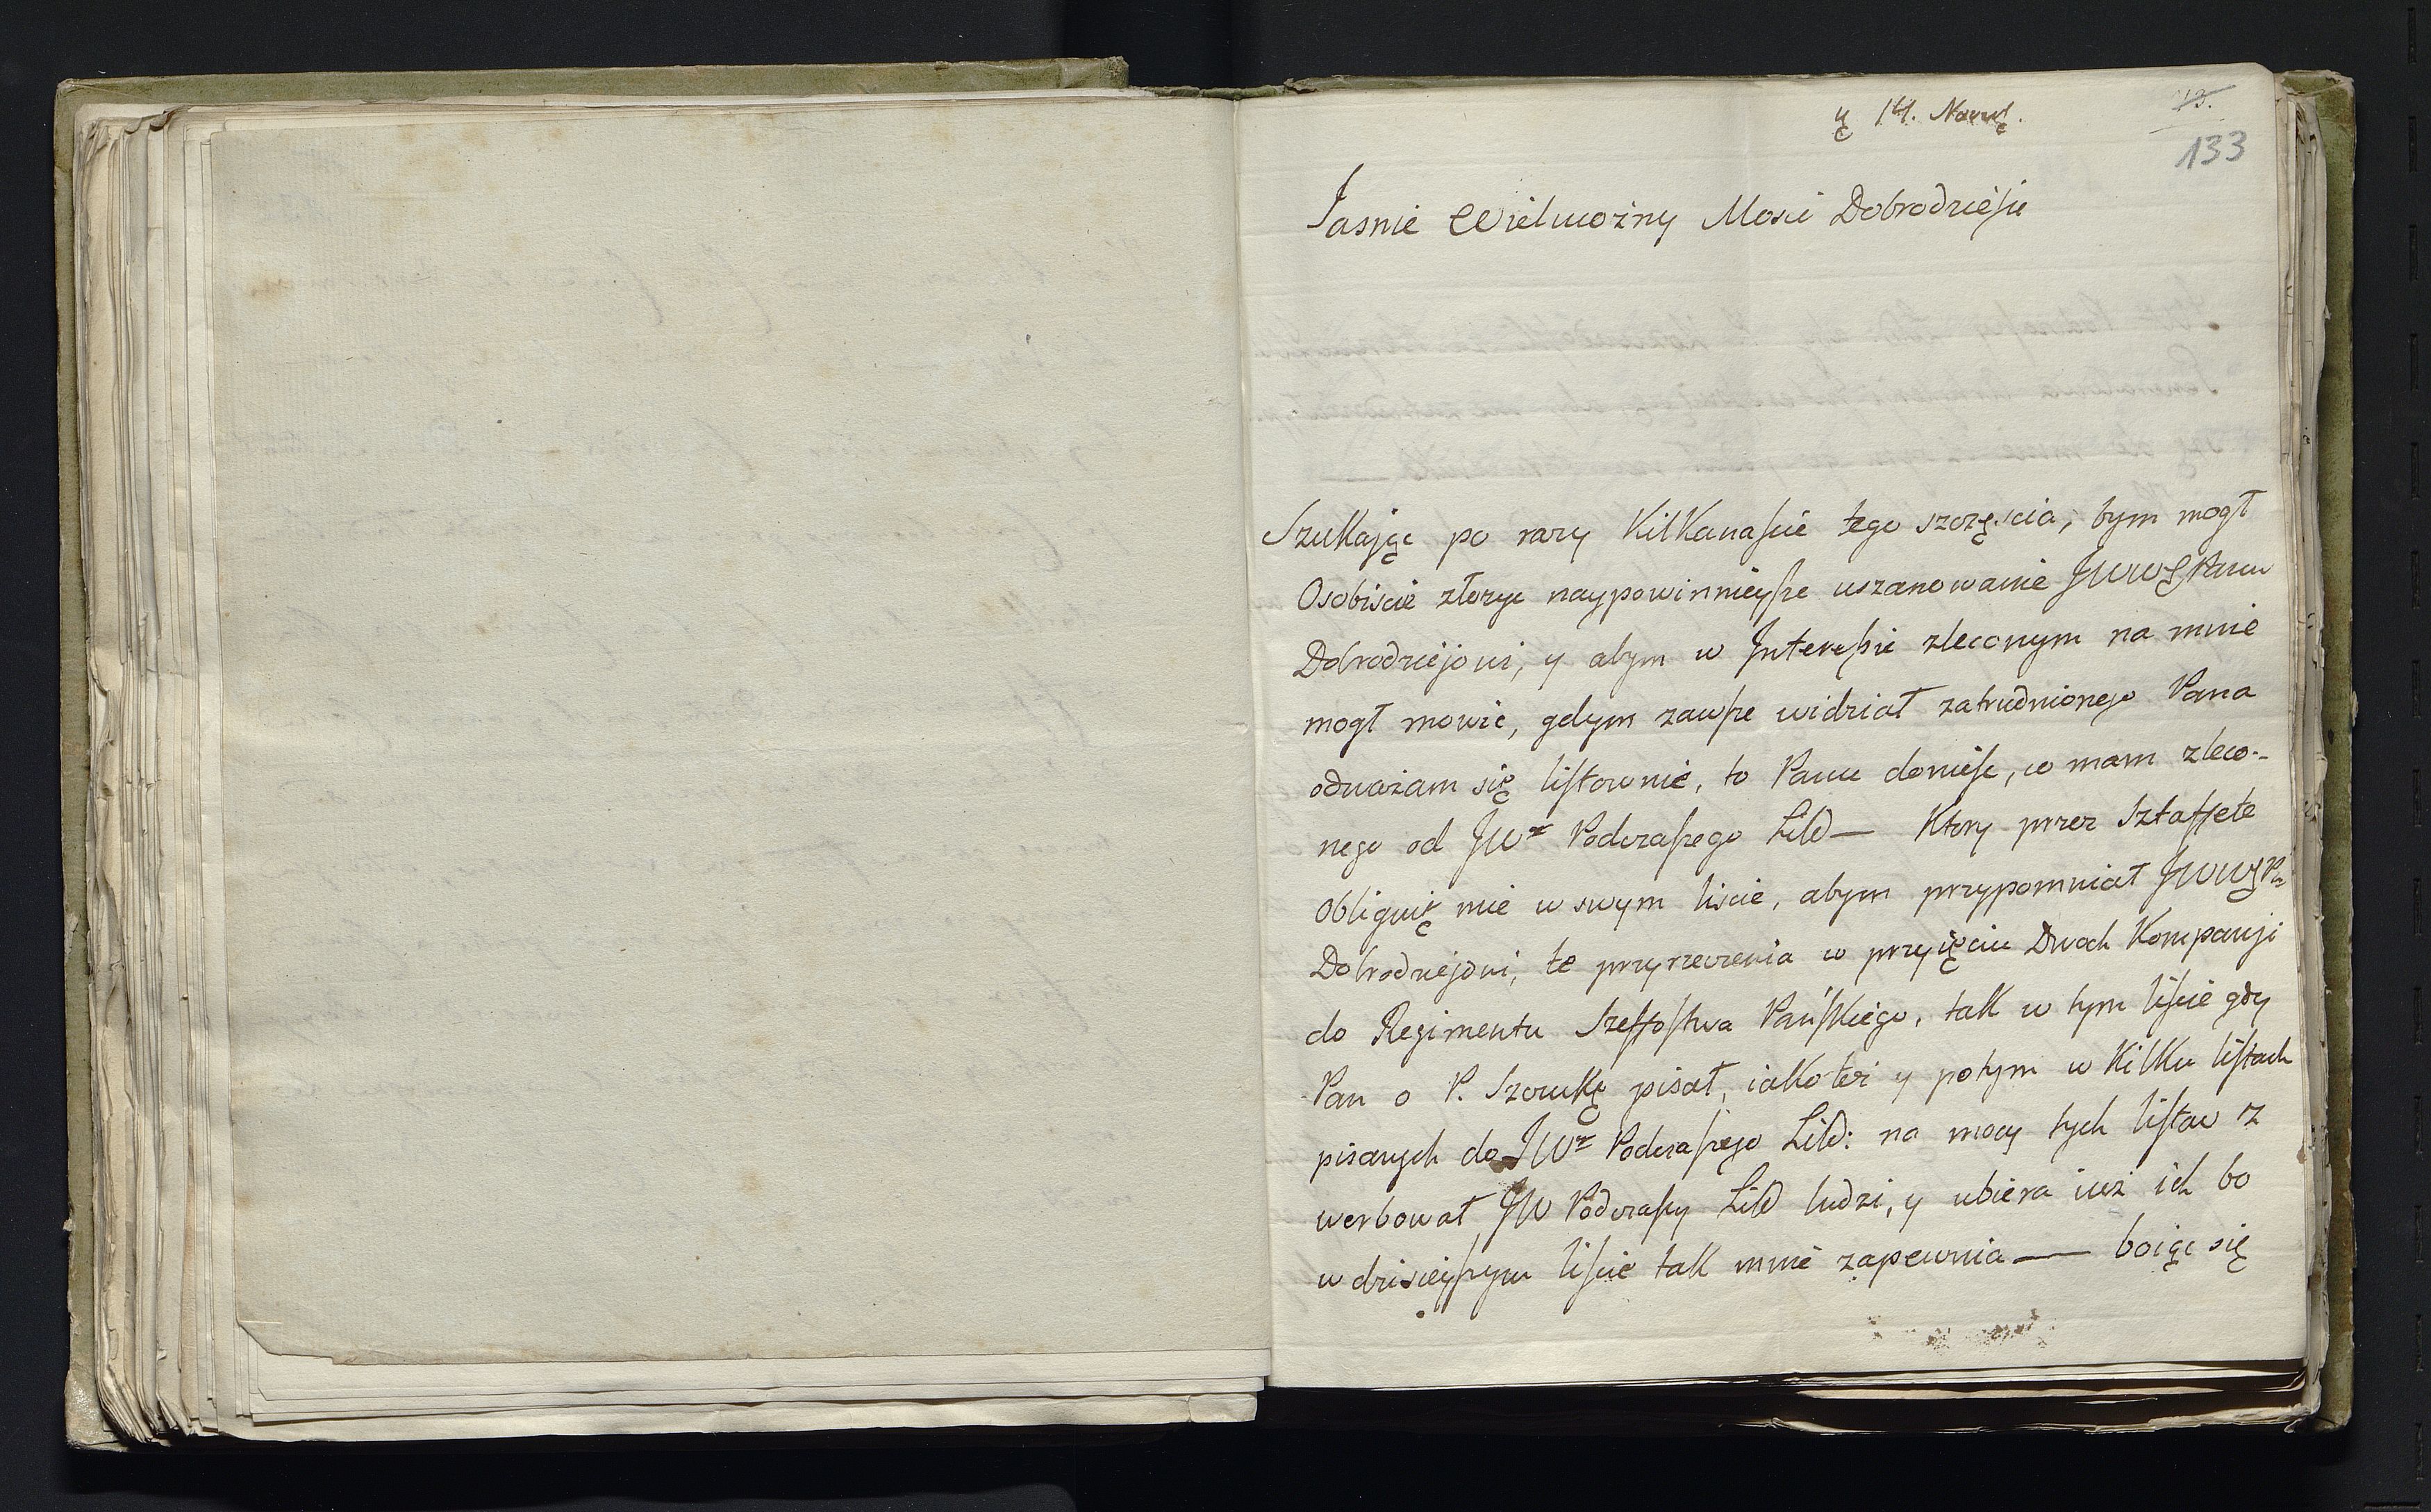 14.
13.
133
Jasnie Wielmożny Mosci Dobrodzieju
Szukając po razy Kilkanaście tego szczęscia, bym mogł
Osobiscie złożyc naypowinnieysze uszanowanie JWWJPanu
Dobrodziejowi, y abym w Interesie zleconym na mnie
mogł mowić, gdym zawsze widział zatrudnionego Pana
odważam się listownie, to Panu doniesc, co mam zleco-
nego od JWo Podczaszego Litt— Ktory przez Sztaffete
Obliguię mie w swym liscie, abym przypomniał JWWJPu
Dobrodziejowi, te przyrzeczenia w przyięciu Dwoch Kompanji
do Regimentu Szeffostwa Pańskiego, tak w tym liscie gdy
Pan o P. pisał, iako też y potym w Kilku listach
pisanych do JWo Podczaszego Litt: na mocy tych listow z
werbował JW Podczaszy Litt ludzi, y ubiera iuż ich bo
w dzisieyszym liscie tak mnie zapewnia — boiąc się